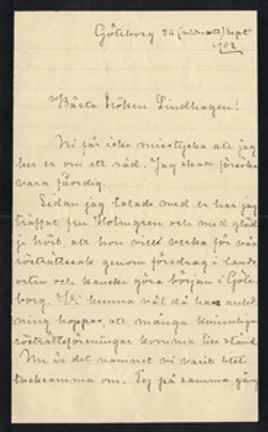 Göteborg 26 (midnatt) sept
1902
Bästa Fröken Lindhagen!
Ni får icke misstycka att jag
ber er om ett råd. Jag skall försöka
vara fåordig.
Sedan jag talade med er har jag
träffat fru Holmgren och med glädje
hört, att hon vill verka för vår
rösträttssak genom föredrag i lands-
orten och kanske göra början i Göte-
borg. Vi kunna väl då ha anled-
ning hoppas, att många kvinnliga
rösträttsföreningar komma till stånd.
Nu är det namnet vi varit litet
tveksamma om. Tej på samma gång